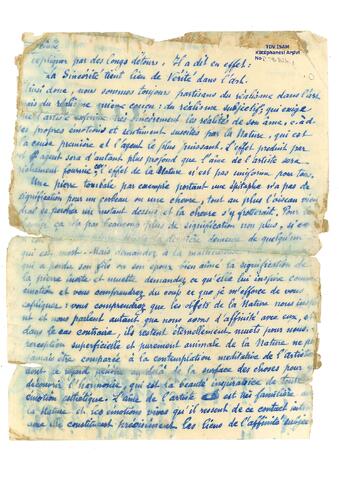 TDV İSAM
Kütüphanesi Arşivi
No
expliquer par des longs détours. Il a dit en effet:
"La Sincérité tient lieu de Vérité dans l'art.
Ainsi donc, nous sommes toujours partisans du réalisme dans l'art
mais du réalisme conçu: du réalisme subjectif, qui exige
l'artiste exprime très sincèrement les réalités de son âme, c.à.d.
ses propres émotions et sentiment suscités par la Nature, qui est
la cause première et l'agent le plus puissant. L'effet produit par
agent sera d'autant plus profond que l'âme de l'artiste sera
fournie; l'effet de la Nature n'est pas uniforme pour tous.
Une pierre tombale par exemple portant une épitaphe n'a pas de
signification pour un corbeau ou une chèvre, tout au plus l'oiseau vien
se percher un instant dessus et la chèvre s'y frotterait. Pour
ça n'a pas beaucoup plus de signification non plus, si
dernière demeure de quelqu'un
qui est mort. Mais demandez à la
qui a perdu son fils ou son époux bien aimé la signification de
la pierre inerte et muette, demandez ce qu'elle lui inspire comme
émotion et vous comprendrez du coup ce que je m'efforce de vous
expliquer: vous comprendrez que les objets de la Nature nous inspi
et nous parlent autant que nous avons d'affinité avec eux, et
dans le cas contraire, ils restent éternellement muets pour nous.
perception superficielle et purement animale de la Nature ne peut
jamais être comparée à la contemplation méditative de l'artiste
dont le regard pénètre au delà de la surface des choses pour
découvrir l'harmonie, qui est la beauté inspiratrice de toute
émotion esthétique. L'âme de l'artiste est très familière
la Nature et ces émotions vives qu'il ressent de ce contact
constituent précisément les liens de l'affinité